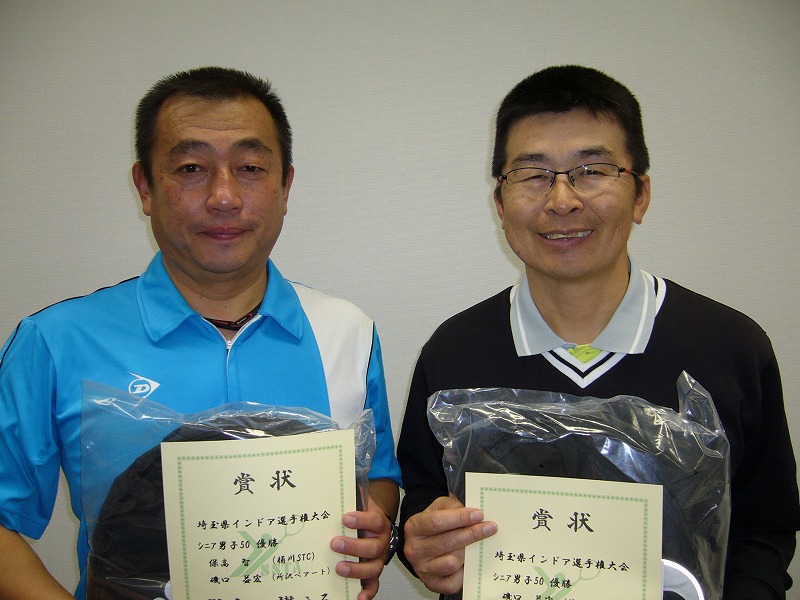 賞状
埼玉県インドア選手権大会
シニア男子50 優勝
保高 智 (桶川STC)
磯口 基宏 (所沢ペアート)
賞状
埼玉県インドア選手権大会
シニア男子50 優勝
D